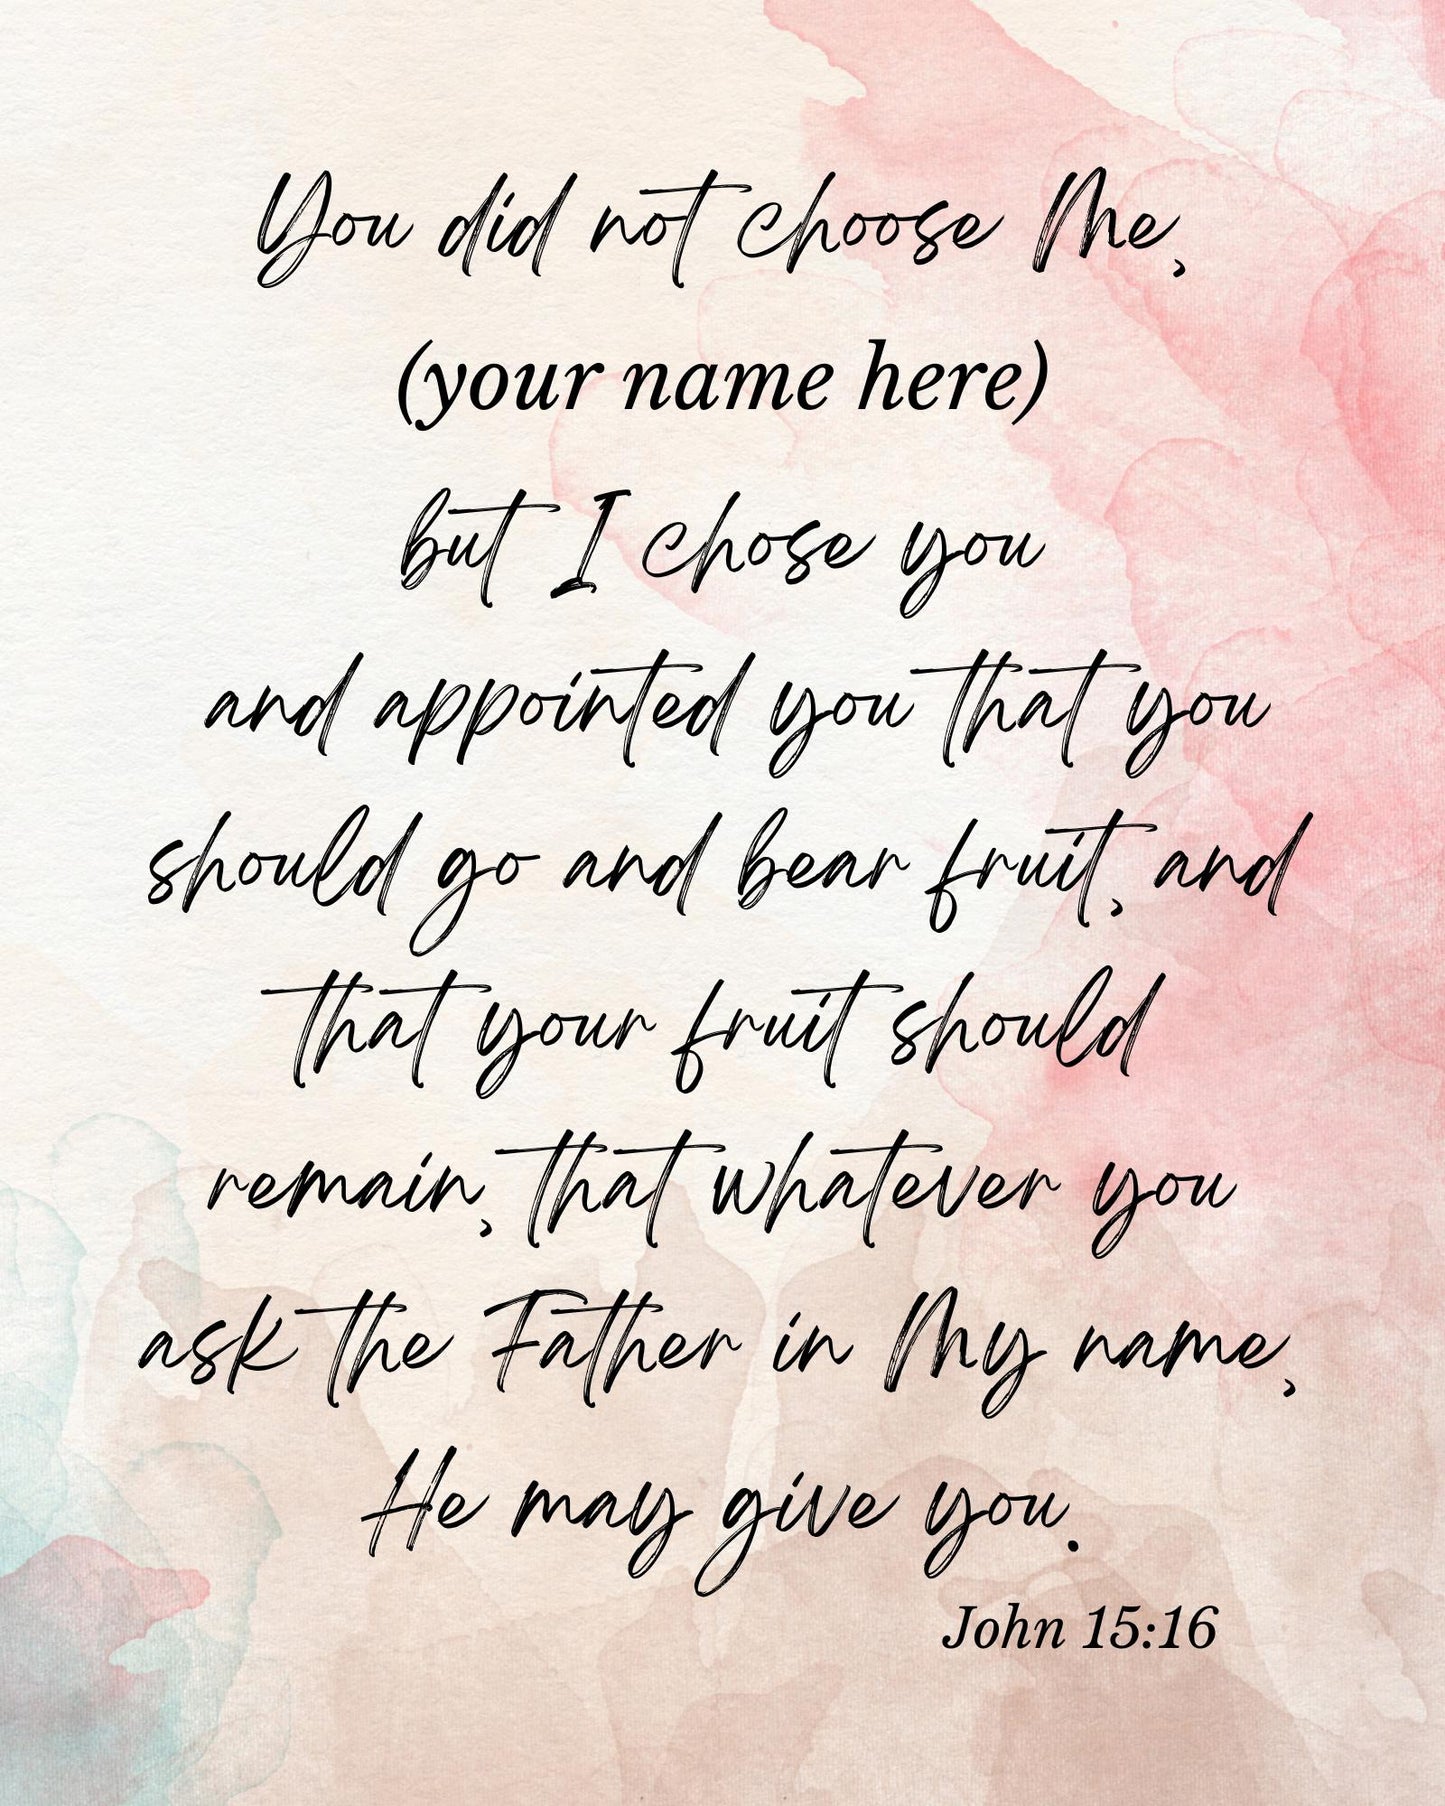 You did not choose Me,
(your name here)
but I chose you
and appointed you that you
should go and bear fruit, and
that your fruit should
remain, that whatever you
ask the Father in My name,
He may give you.
John 15:16